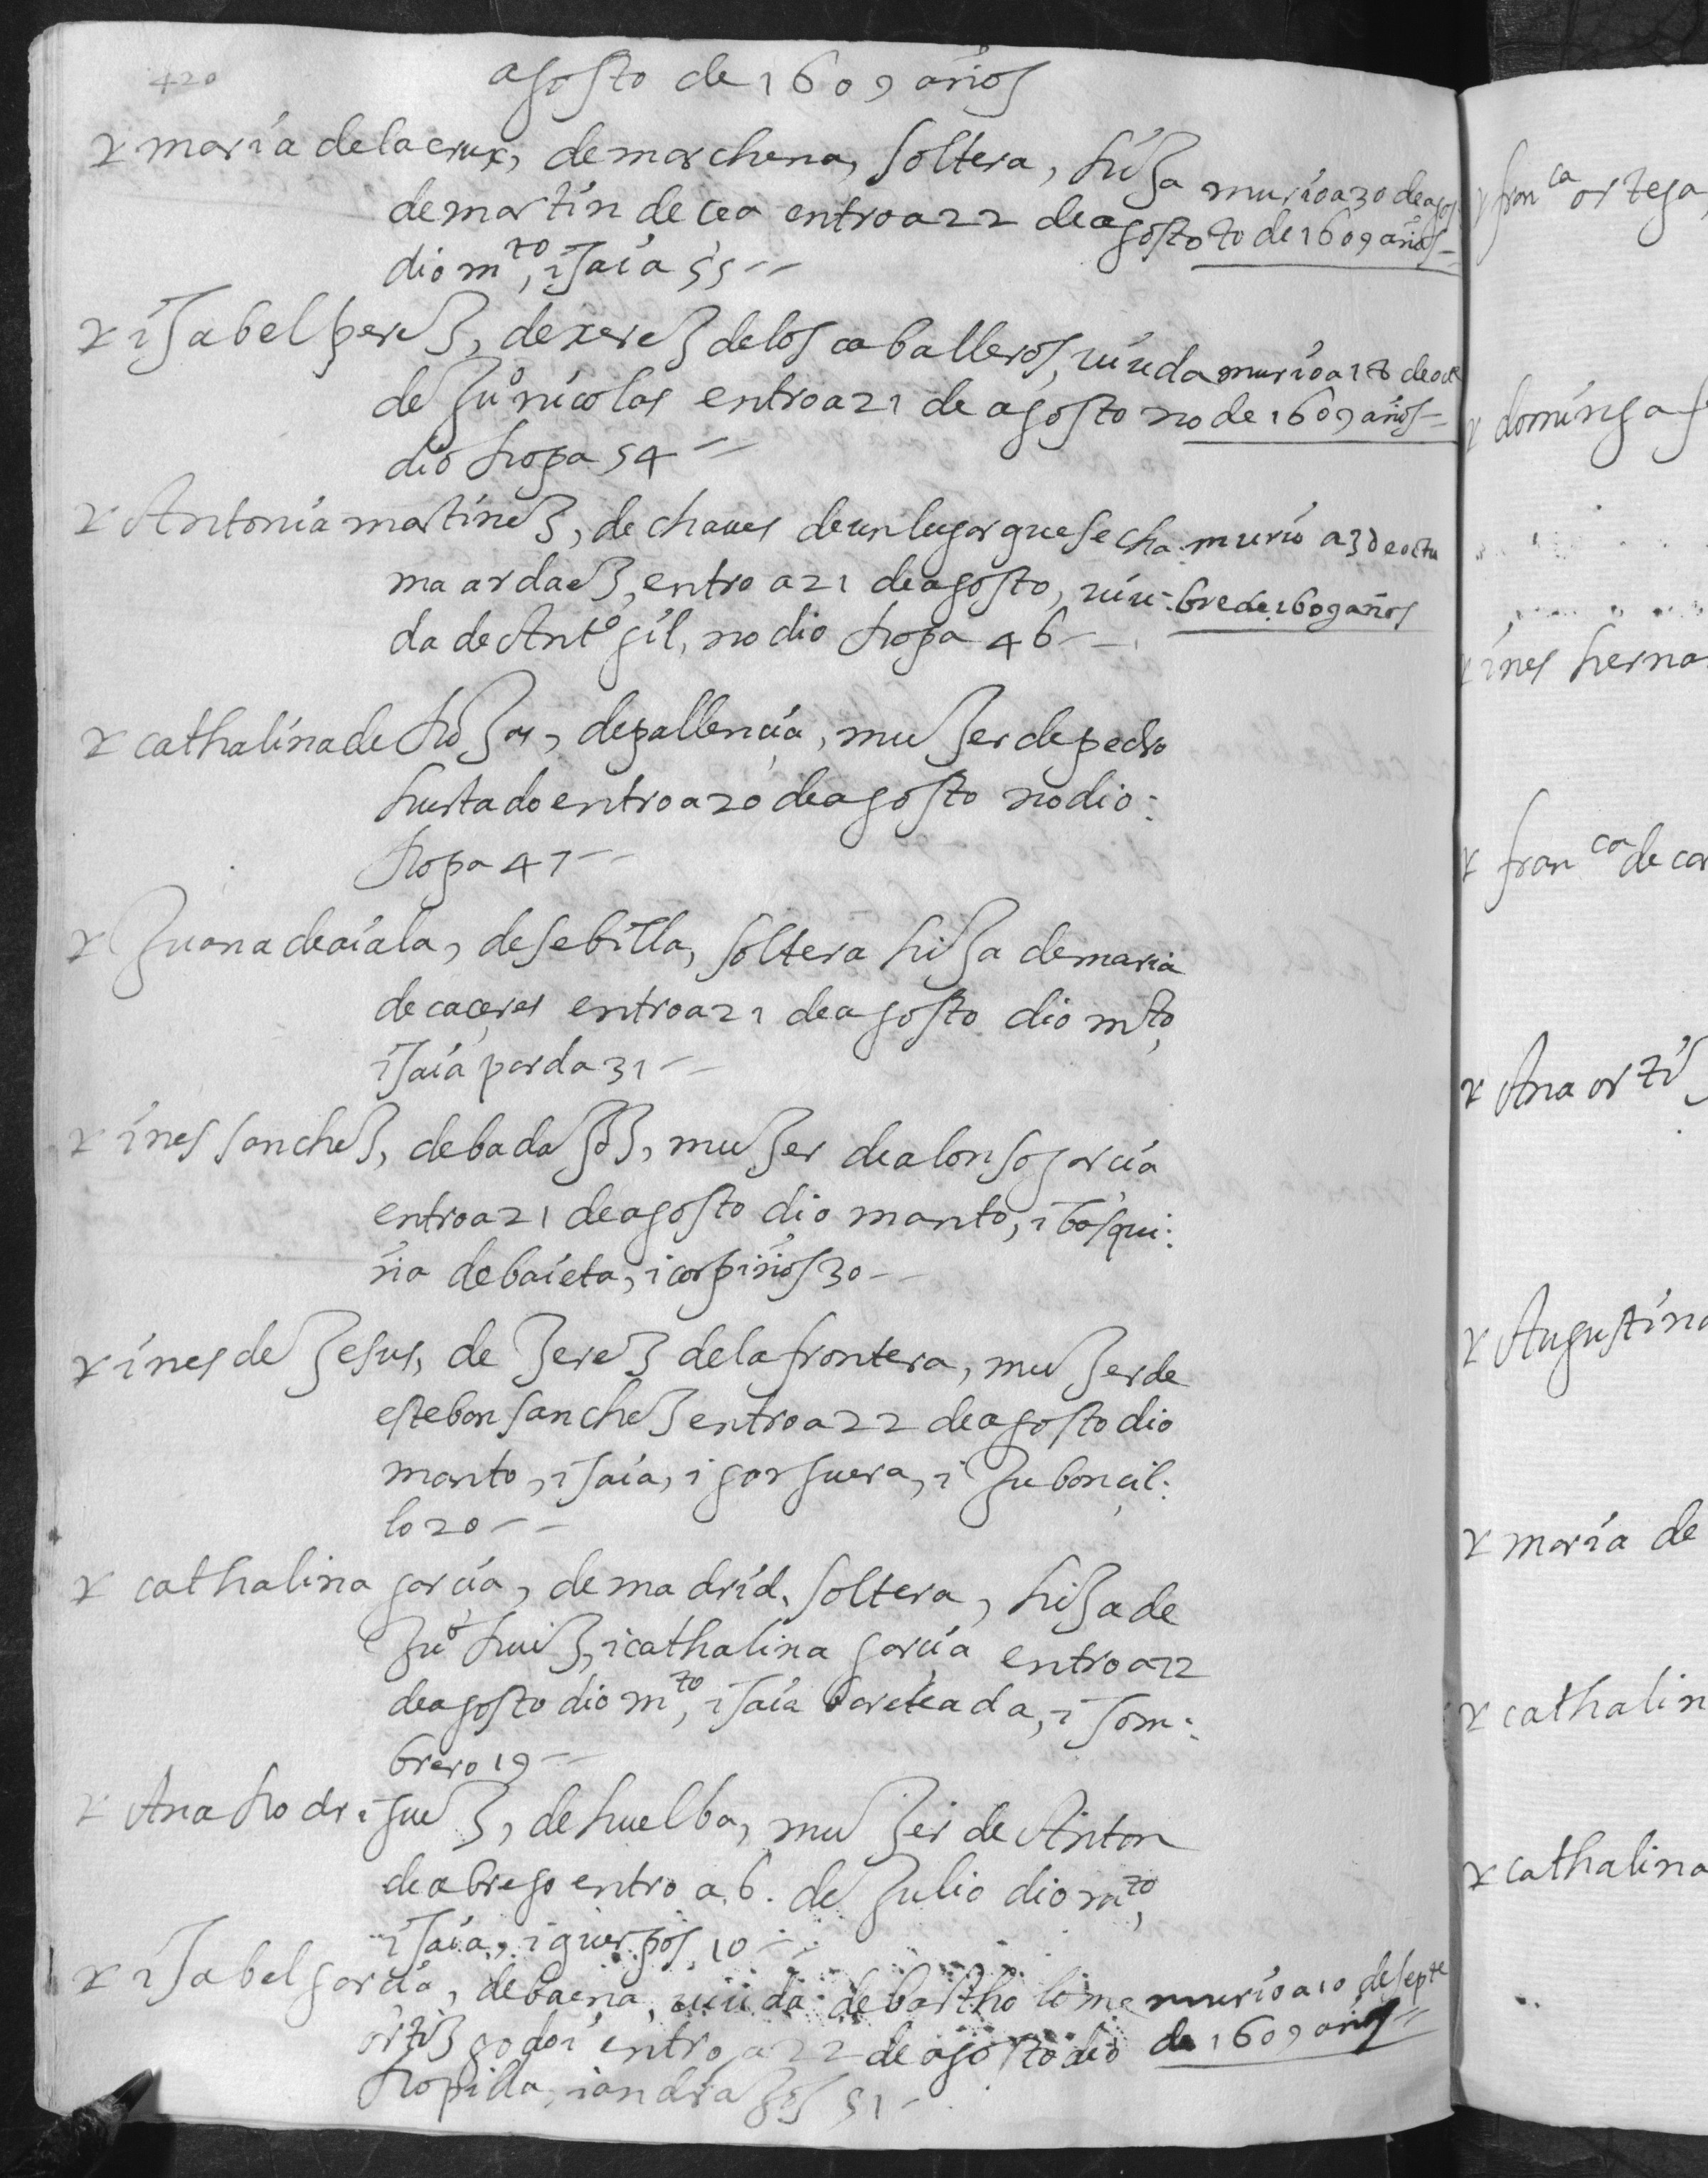 420
agosto de 1609 años
maria de la crux, de marchena, soltera, hija
de martin de cea entro a 22 de agosto
dio mto, i saia 55
murio a 30 de agos
to de 1609 años
isabel perez, de xerez de los caballeros, uiuda
de juo nicolas entro a 21 de agosto no
dio rropa 54
murio a 18 de oct
de 1609 años
Antonia martinez, de chaues de un lugar que se cha
ma ardaez, entro a 21 de agosto, uiu
da de Anto gil, no dio rropa 46
murio a 3 de octu
bre de 1609 años
cathalina de rrojas, de pallencia, mujer de pedro
hurtado entro a 20 de agosto no dio
rropa 47
Juana de aiala, de sebilla, soltera hija de maria
de caceres entro a 21 de agosto dio mto,
i saia parda 31
ines sanchez, de badajoz, mujer de alonso garcia
entro a 21 de agosto dio manto, i basqui
ña de baieta, i corpiños 30
ines de jesus, de jerez de la frontera, mujer de
esteban sanchez entro a 22 de agosto dio
manto, i saia, i gorguera, i juboncil
lo 20
cathalina garcia, de madrid, soltera, hija de
juo rruiz, i cathalina garcia entro a 22
de agosto dio mto, i saia bareteada, i som
brero 19
Ana rrodriguez, de huelba, mujer de Anton
de abrego entro a 6. de julio dio mto,
i saia, i querpos 10
isabel garcia, de baena, uiuda de bartholome
ortiz godoi entro a 22 de agosto dio
rropilla, i andrajos 51
murio a 10 de septe
de 1609 años
franca ortega
dominga
ines herna
franca de car
Ana ortiz
Augustina
maria de
cathalin
cathalina